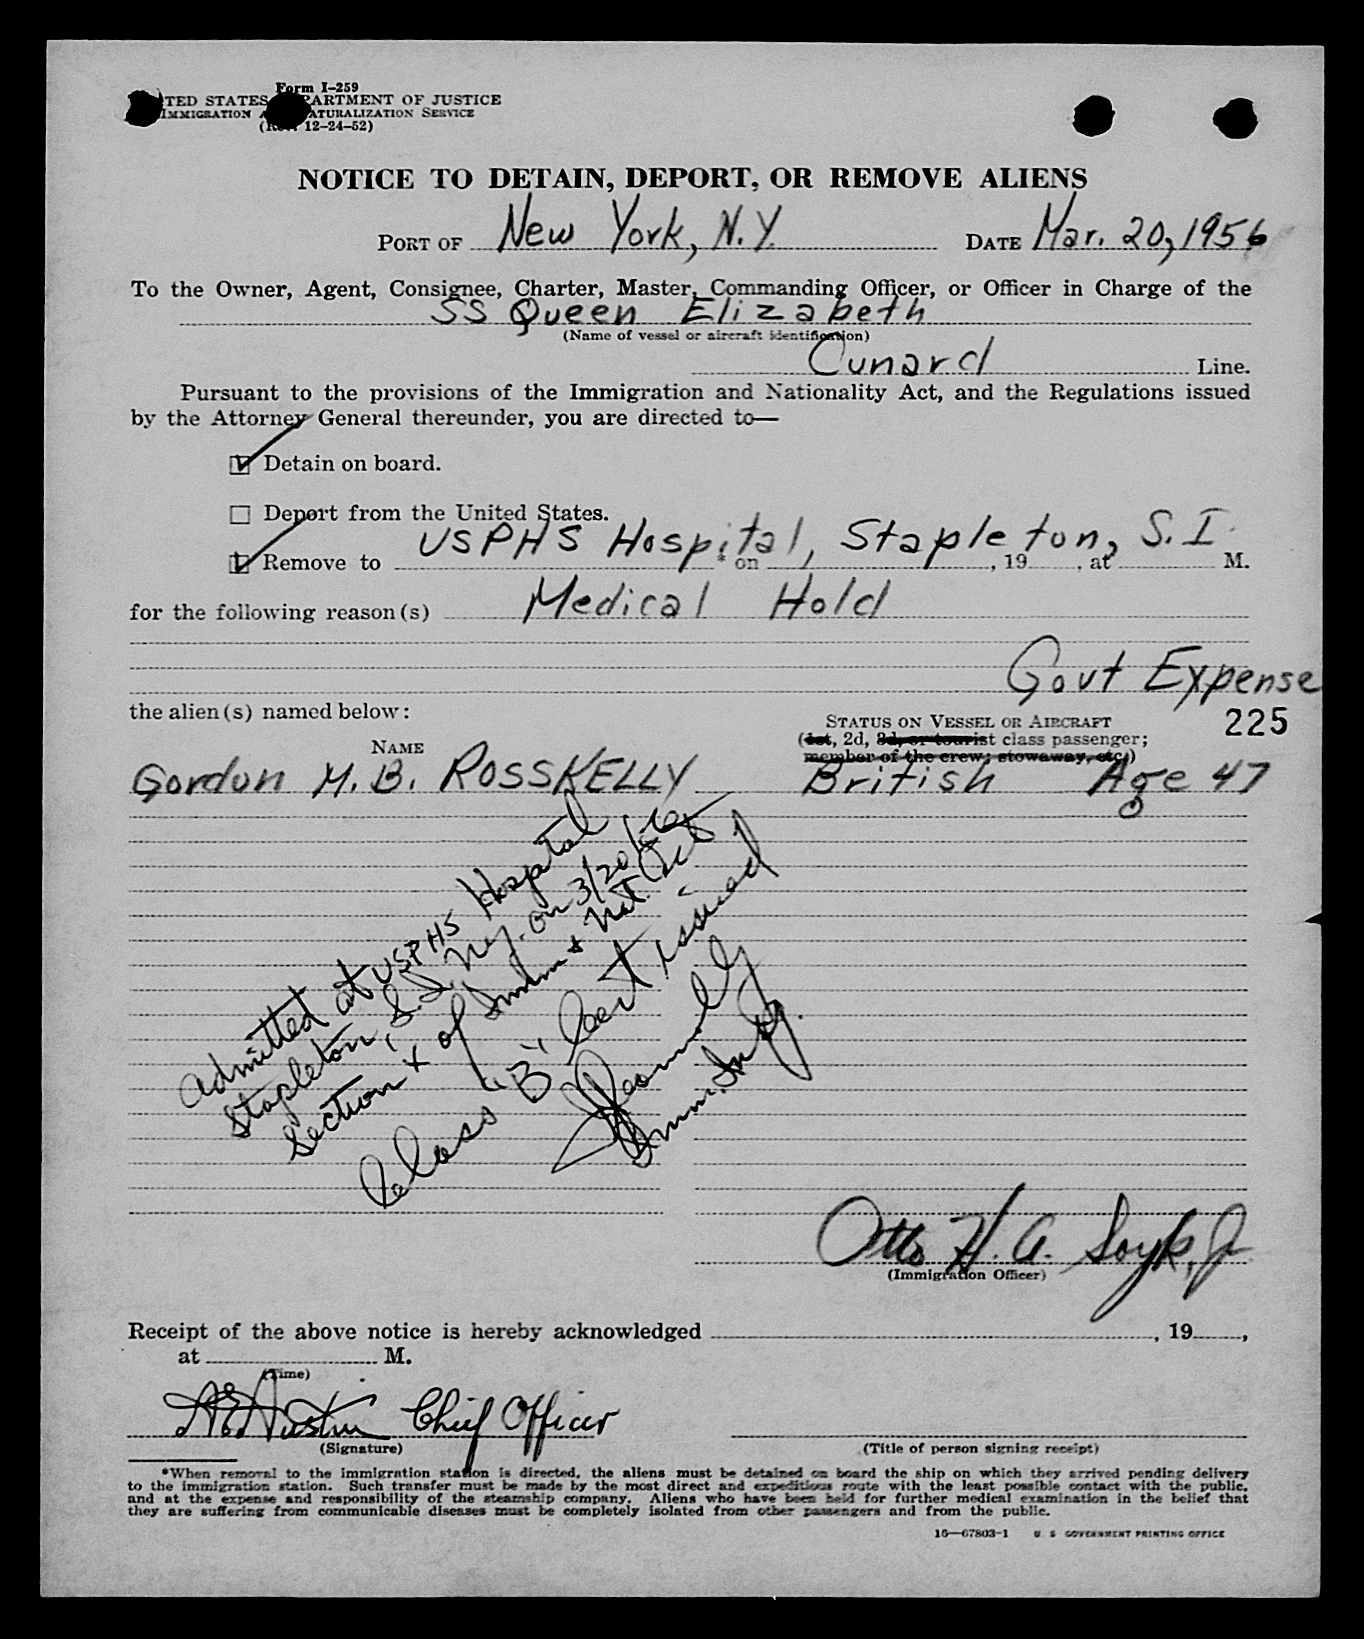 Form I-259
TED STATES PARTMENT OF JUSTICE
IMMIGRATION A ATURALIZATION SERVICE
(R 12-24-52)
NOTICE TO DETAIN, DEPORT, OR REMOVE ALIENS
PORT OF New York, N.Y. DATE Mar. 20, 1956
To the Owner, Agent, Consignee, Charter, Master, Commanding Officer, or Officer in Charge of the
SS Queen Elizabeth
(Name of vessel or aircraft identification)
Cunard Line.
Pursuant to the provisions of the Immigration and Nationality Act, and the Regulations issued
by the Attorney General thereunder, you are directed to—
☑ Detain on board.
☐ Deport from the United States.
☑ Remove to USPHS Hospital, Stapleton, S.I. * on , 19 , at M.
for the following reason(s) Medical Hold
Govt Expense
the alien(s) named below:
225
STATUS ON VESSEL OR AIRCRAFT
(1st, 2d, 3d, or tourist class passenger;
member of the crew; stowaway, etc.)
NAME
Gordon M. B. ROSSKELLY British Age 47
Admitted at USPHS Hospital
Stapleton, S.I., N.Y. on 3/20/56
Section of Imm & Nat. Act
Class "B" Cert issued
Imm. Insp.
Otto H. A. Soyk, Jr
(Immigration Officer)
Receipt of the above notice is hereby acknowledged , 19 ,
at M.
(Time)
A E Austin Chief Officer
(Signature) (Title of person signing receipt)
*When removal to the immigration station is directed, the aliens must be detained on board the ship on which they arrived pending delivery
to the immigration station. Such transfer must be made by the most direct and expeditious route with the least possible contact with the public,
and at the expense and responsibility of the steamship company. Aliens who have been held for further medical examination in the belief that
they are suffering from communicable diseases must be completely isolated from other passengers and from the public.
16—67803-1 U. S. GOVERNMENT PRINTING OFFICE